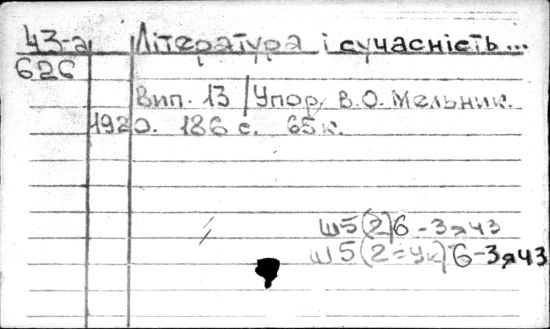 43-а Література і сучасність...
626
Вип. 13 / Упор. В.О. Мельник.
1980. 186 с. 65 к.
Ш5(2)6-3я43
Ш5(2=Ук)6-3я43